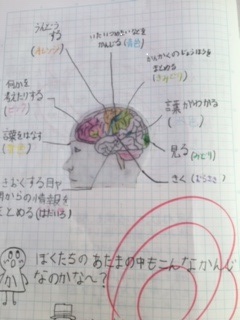 うんどう
する
(オレンジ)
いたい つめたいなどを
かんじる (青色)
かんかくのじょうほうを
まとめる
(きみどり)
何かを
考えたりする
(ピンク)
言葉をはなす
(黄色)
言葉がわかる
見る (みどり)
きく (むらさき)
きおくする 目や
耳からの情報を
まとめる (はだいろ)
ぼくたちの あたまの中もこんなかんじ
なのかな～?